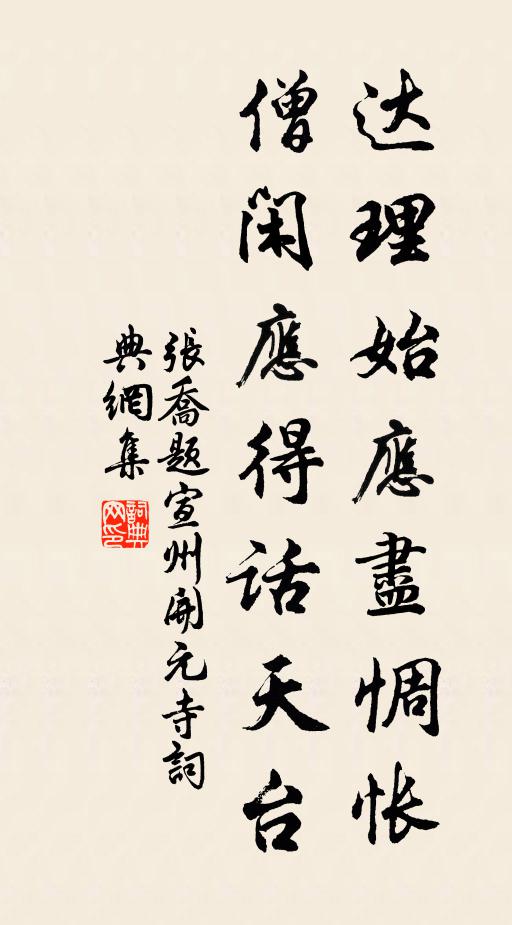 达理始應盡惆怅
僧闲應得话天台
張喬題宣州開元寺詞
典網集
詞典网印